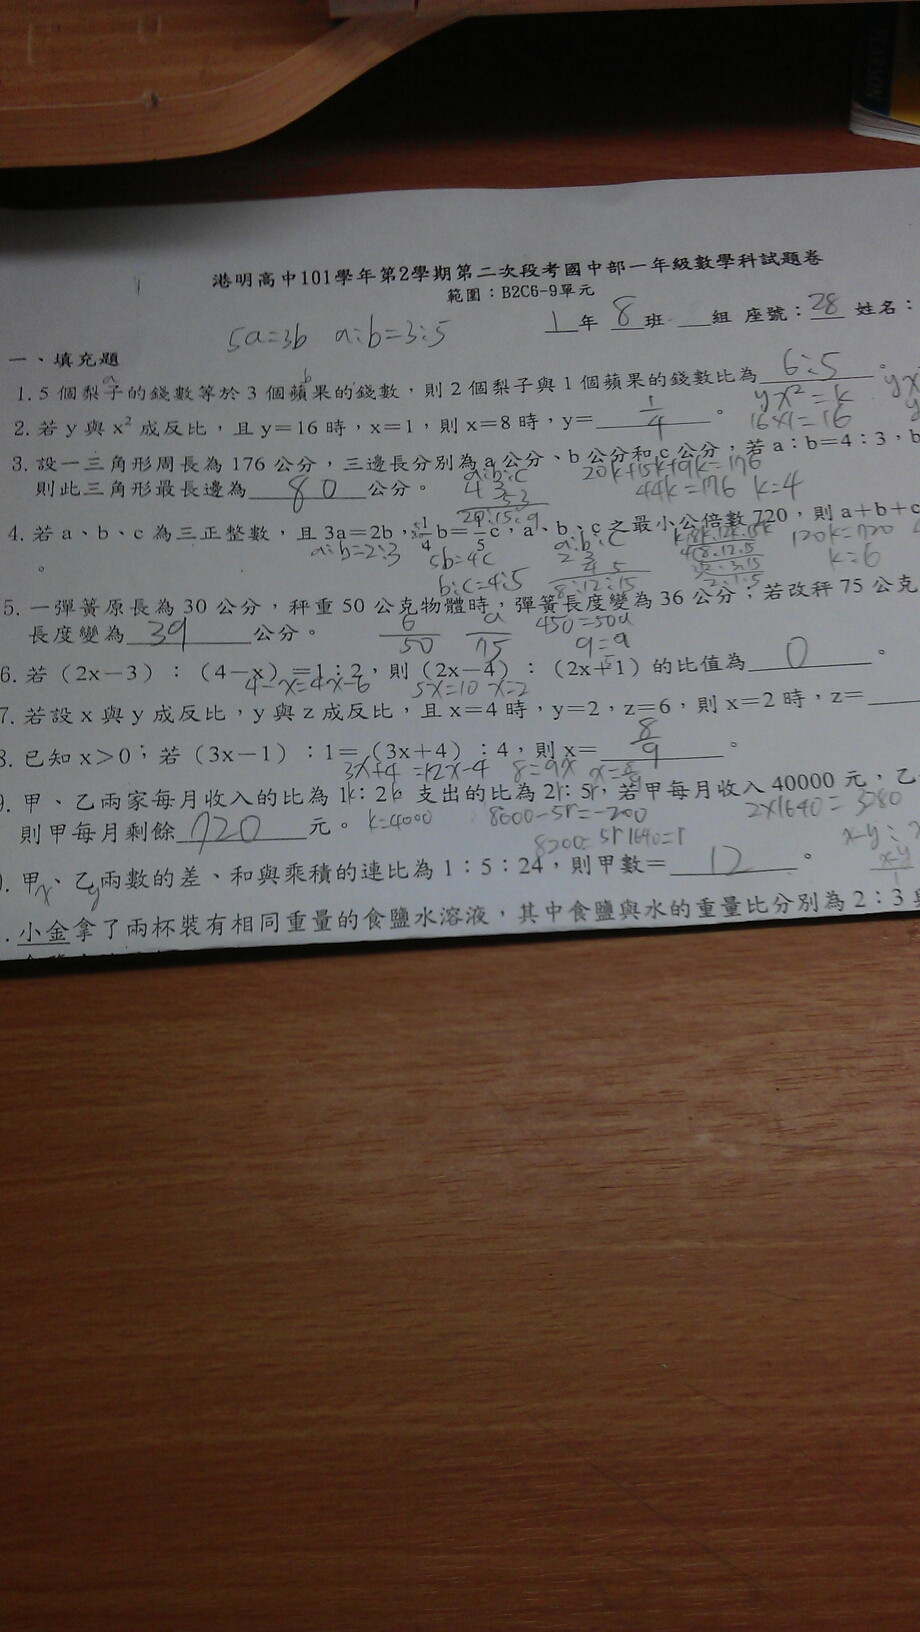 港明高中101學年第2學期第二次段考國中部一年級數學科試題卷
範圍：B2C6-9單元
1年 8班 組 座號：28 姓名：
5a=3b a:b=3:5
一、填充題
1.5個梨子的錢數等於3個蘋果的錢數，則2個梨子與1個蘋果的錢數比為 6:5 。
a b
yx²=k
2.若y與x²成反比，且y=16時，x=1，則x=8時，y= 1/4 。
16×1=16
3.設一三角形周長為176公分，三邊長分別為a公分、b公分和c公分；若a：b=4：3，b
a:b:c 20k+15k+9k=176
則此三角形最長邊為 80 公分。
4 3
5 3
20:15:9
44k=176 k=4
4.若a、b、c為三正整數，且3a=2b，1/4b=1/5c，a、b、c之最小公倍數720，則a+b+c
。
a:b=2:3 5b=4c
b:c=4:5
a:b:c
2 3
4 5
8:12:15
120k=720
k=6
5.一彈簧原長為30公分，秤重50公克物體時，彈簧長度變為36公分；若改秤75公克
長度變為 39 公分。
6/50 a/75
450=50a
a=9
6.若（2x－3）：（4－x）=1：2，則（2x－4）：（2x+1）的比值為 0 。
4-x=4x-6 5x=10 x=2
7.若設x與y成反比，y與z成反比，且x=4時，y=2，z=6，則x=2時，z=
8.已知x＞0；若（3x－1）：1=（3x+4）：4，則x= 8/9 。
3x+4=12x-4 8=9x x=8/9
9.甲、乙兩家每月收入的比為1k：2k 支出的比為2r：5r，若甲每月收入40000元，乙
則甲每月剩餘 720 元。
k=4000 8000-5r=-200
8200=5r 1640=r
2×1640=3280
甲、乙兩數的差、和與乘積的連比為1：5：24，則甲數= 12 。
x y
小金拿了兩杯裝有相同重量的食鹽水溶液，其中食鹽與水的重量比分別為2：3